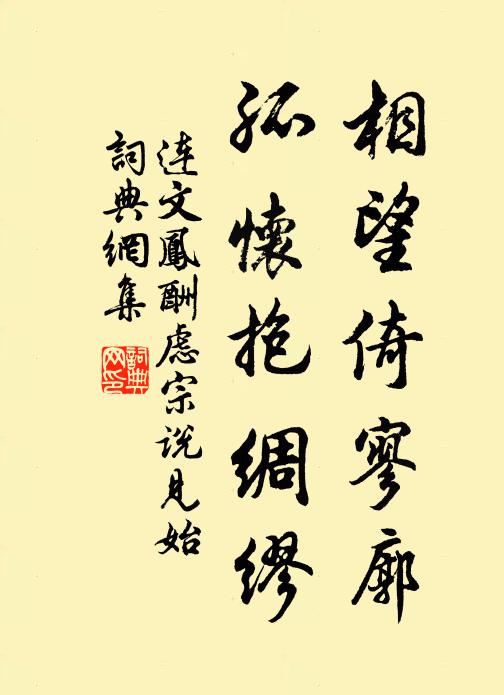 相望倚寥廓
孤懷抱綢繆
連文鳳酬慮宗說見始
詞典網集
詞典網印